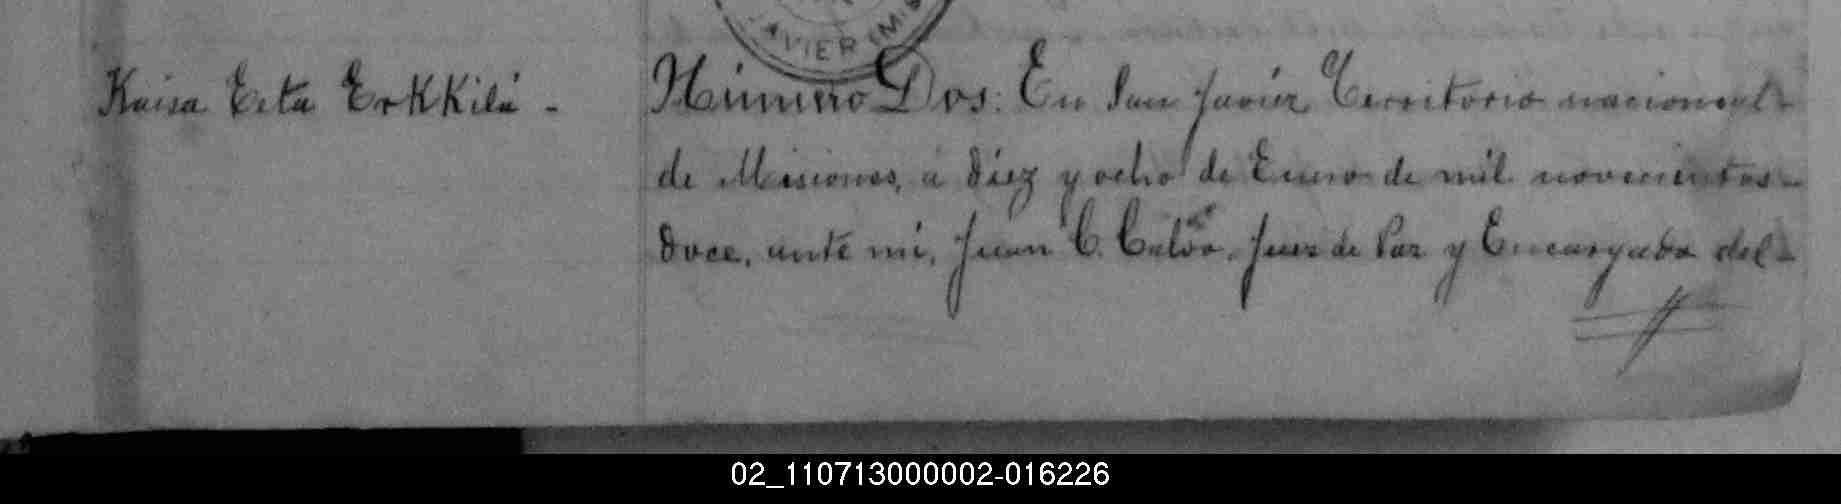 AVIER (MIS
Kaisa Erta ErKKilá -
Número Dos: En San Javier Territorio nacional-
de Misiones, á diez y ocho de Enero de mil novecientos-
doce, ante mi, Juan C. Calvo, Juez de Paz y Encargado del-
02_110713000002-016226